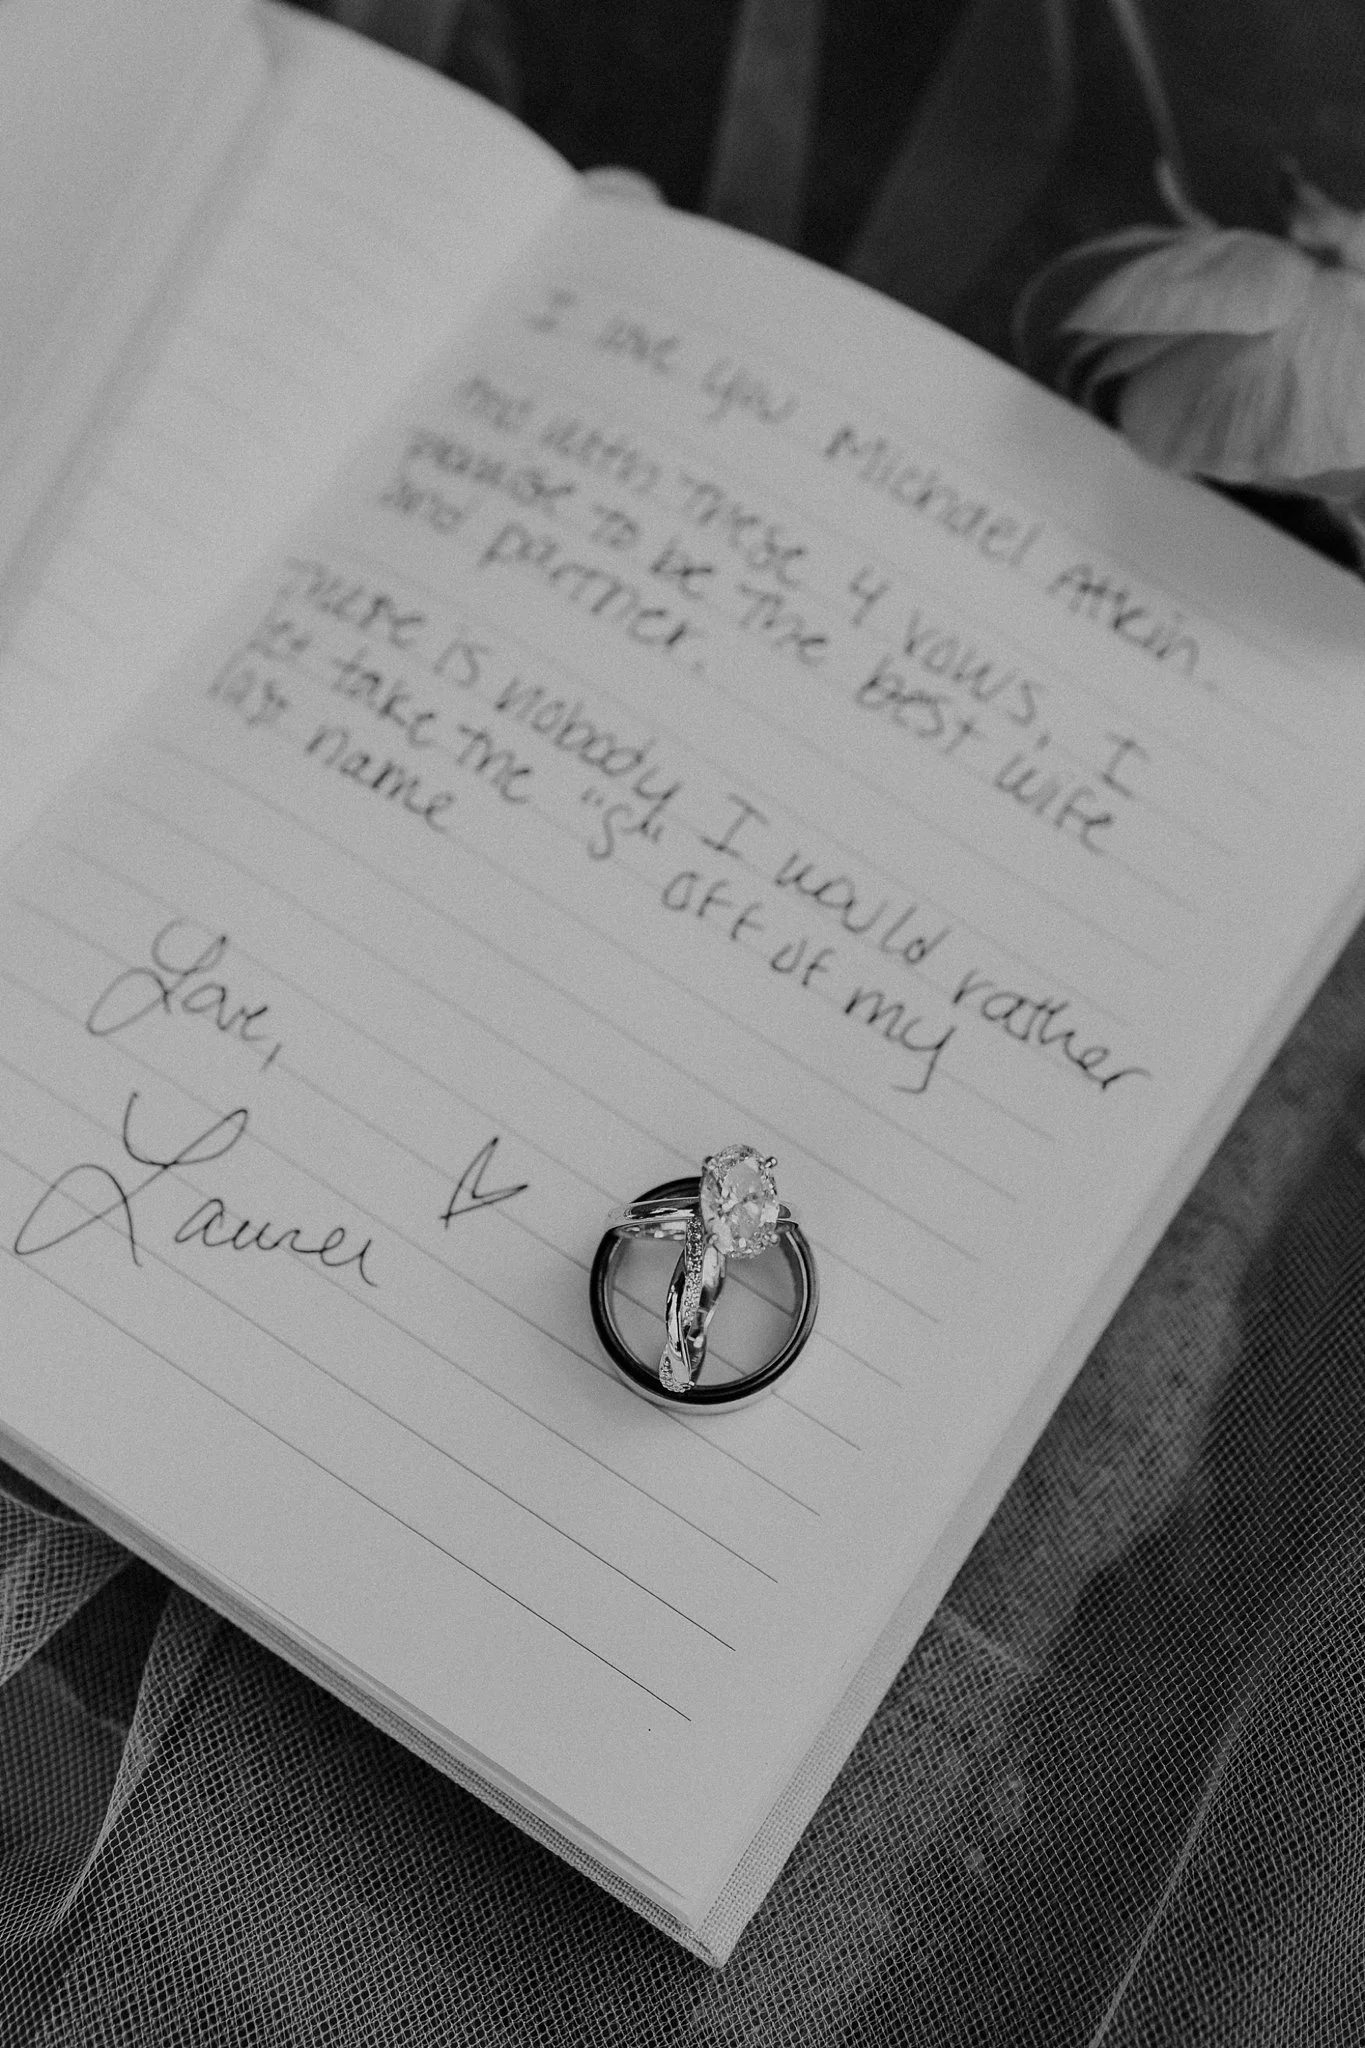 I love you Michael Atkin.
and with these 4 vows, I
promise to be the best wife
and partner.
There is nobody I would rather
let take the "s" off of my
last name
Love,
Lauren